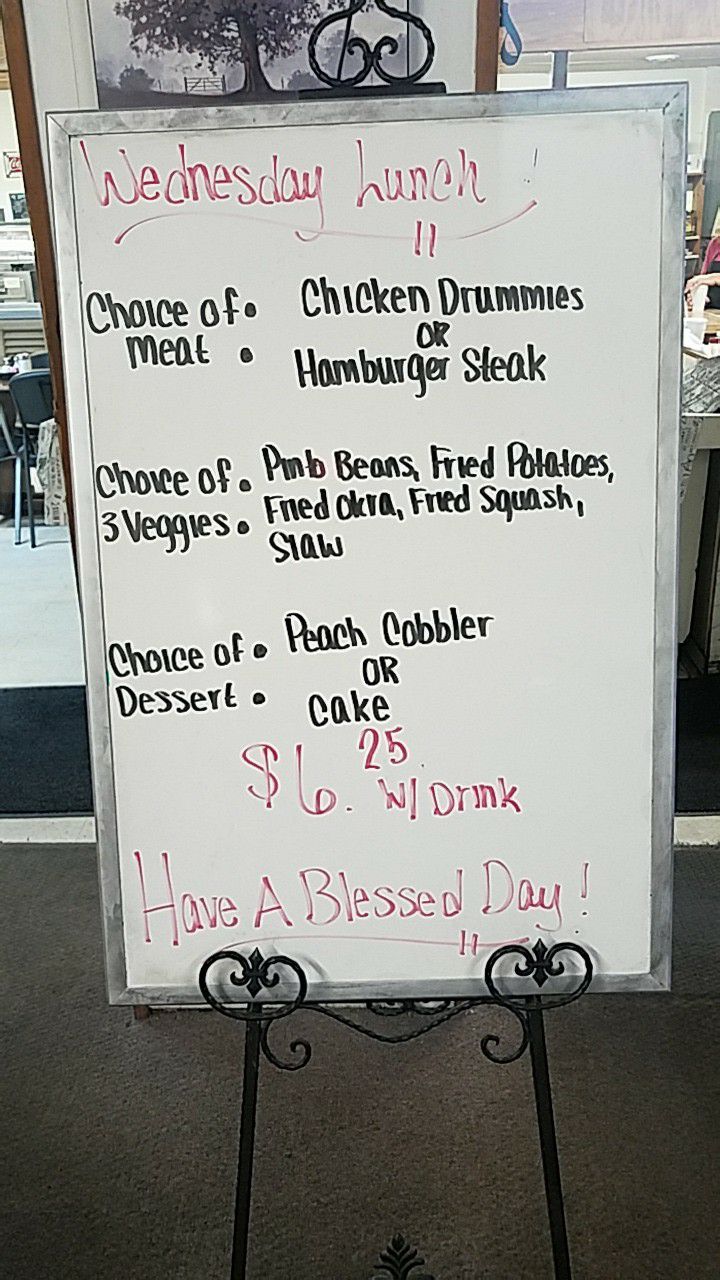 Wednesday Lunch!
Choice of • Chicken Drummies
OR
Meat • Hamburger Steak
Choice of • Pinto Beans, Fried Potatoes,
3 Veggies • Fried Okra, Fried Squash,
Slaw
Choice of • Peach Cobbler
OR
Dessert • Cake
$6.25
W/ Drink
Have A Blessed Day!